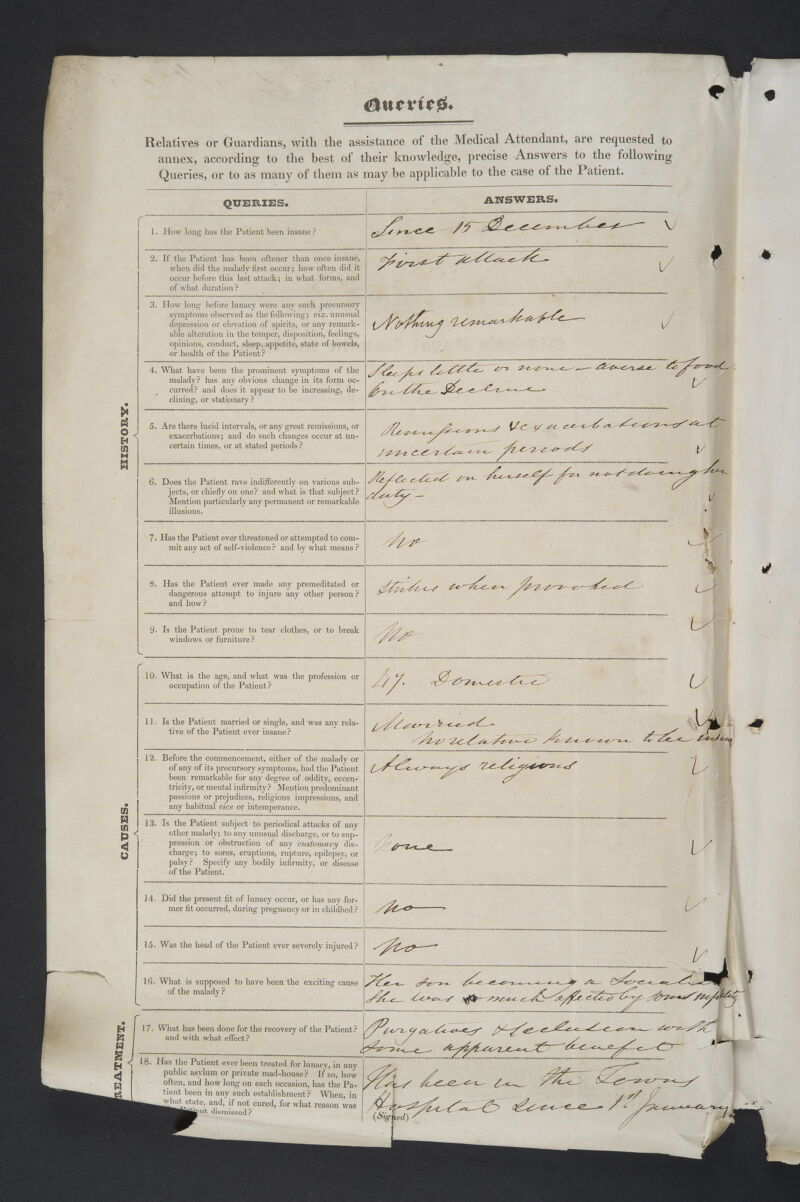 Queries.
Relatives or Guardians, with the assistance of the Medical Attendant, are requested to
annex, according to the best of their knowledge, precise Answers to the following
Queries, or to as many of them as may be applicable to the case of the Patient.
QUERIES.
ANSWERS.
HISTORY.
1. How long has the Patient been insane?
Since 15 December
2. If the Patient has been oftener than once insane,
when did the malady first occur; how often did it
occur before this last attack; in what forms, and
of what duration?
First attack
3. How long before lunacy were any such precursory
symptoms observed as the following; viz. unusual
depression or elevation of spirits, or any remark-
able alteration in the temper, disposition, feelings,
opinions, conduct, sleep, appetite, state of bowels,
or health of the Patient?
Nothing remarkable
4. What have been the prominent symptoms of the
malady? has any obvious change in its form oc-
curred? and does it appear to be increasing, de-
clining, or stationary?
Sleeps little or none - averse to food.
On the Decline
5. Are there lucid intervals, or any great remissions, or
exacerbations; and do such changes occur at un-
certain times, or at stated periods?
Remissions & exacerbations at
uncertain periods
6. Does the Patient rave indifferently on various sub-
jects, or chiefly on one? and what is that subject?
Mention particularly any permanent or remarkable
illusions.
Reflected on herself for not doing her
duty -
7. Has the Patient ever threatened or attempted to com-
mit any act of self-violence? and by what means?
No
8. Has the Patient ever made any premeditated or
dangerous attempt to injure any other person?
and how?
Strikes when provoked
9. Is the Patient prone to tear clothes, or to break
windows or furniture?
No
CAUSES.
10. What is the age, and what was the profession or
occupation of the Patient?
47. Domestic
11. Is the Patient married or single, and was any rela-
tive of the Patient ever insane?
Married
No relative known to be insane
12. Before the commencement, either of the malady or
of any of its precursory symptoms, had the Patient
been remarkable for any degree of oddity, eccen-
tricity, or mental infirmity? Mention predominant
passions or prejudices, religious impressions, and
any habitual vice or intemperance.
Always religious
13. Is the Patient subject to periodical attacks of any
other malady; to any unusual discharge, or to sup-
pression or obstruction of any customary dis-
charge; to sores, eruptions, rupture, epilepsy, or
palsy? Specify any bodily infirmity, or disease
of the Patient.
None
14. Did the present fit of lunacy occur, or has any for-
mer fit occurred, during pregnancy or in childbed?
No
15. Was the head of the Patient ever severely injured?
No
16. What is supposed to have been the exciting cause
of the malady?
Her son becoming a Socialist
She was much affected by
TREATMENT.
17. What has been done for the recovery of the Patient?
and with what effect?
Purgatives & seclusion with
some apparent benefit
18. Has the Patient ever been treated for lunacy, in any
public asylum or private mad-house? If so, how
often, and how long on each occasion, has the Pa-
tient been in any such establishment? When, in
what state, and, if not cured, for what reason was
Patient dismissed?
Has been in the Towns
Hospital since 1st January
(Signed)